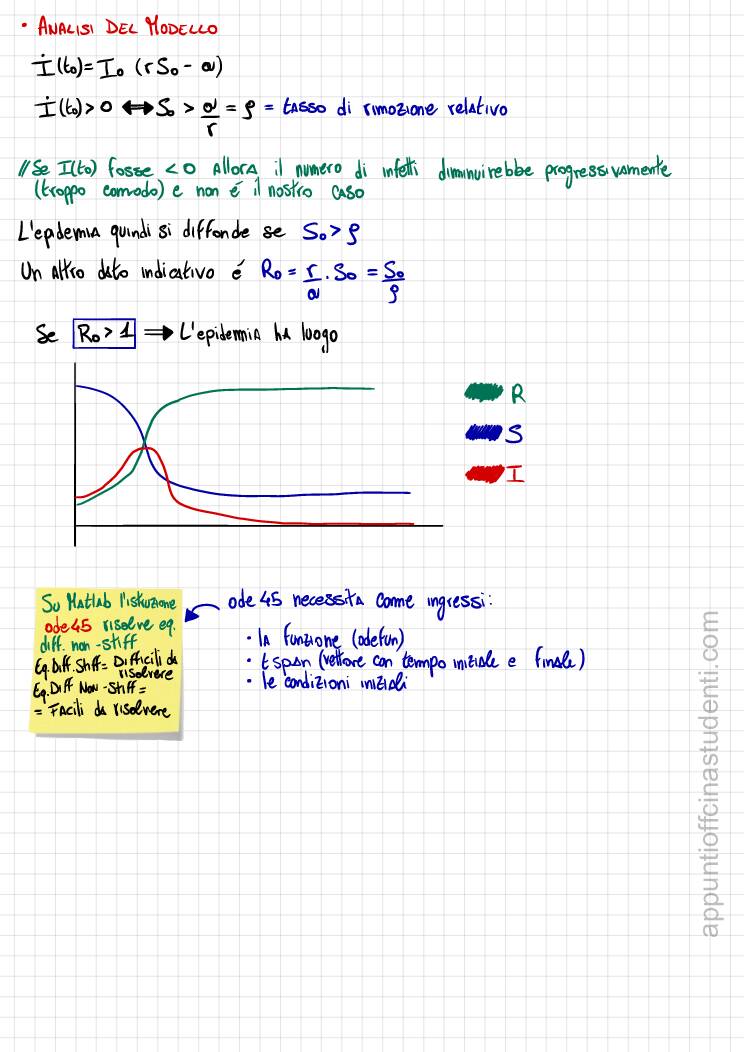 • ANALISI DEL MODELLO
İ(t₀)= I₀ (rS₀ - a)
İ(t₀)>0 ⟺ S₀ > a/r = ρ = tASSO di rimozione relativo
// Se I(t₀) fosse <0 Allora il numero di infetti diminuirebbe progressivamente
(troppo comodo) e non é il nostro caso
L'epidemia quindi si diffonde se S₀>ρ
Un altro dato indicativo é R₀ = r/a . S₀ = S₀/ρ
Se R₀>1 ⟹ L'epidemia ha luogo
R
S
I
Su Matlab l'istruzione
ode45 risolve eq.
diff. non-stiff
Eq.Diff.Stiff= Difficili da
risolvere
Eq.Diff Non-Stiff=
= Facili da risolvere
ode 45 necessita come ingressi:
• la funzione (odefun)
• tspan (vettore con tempo iniziale e finale)
• le condizioni iniziali
appuntioffcinastudenti.com